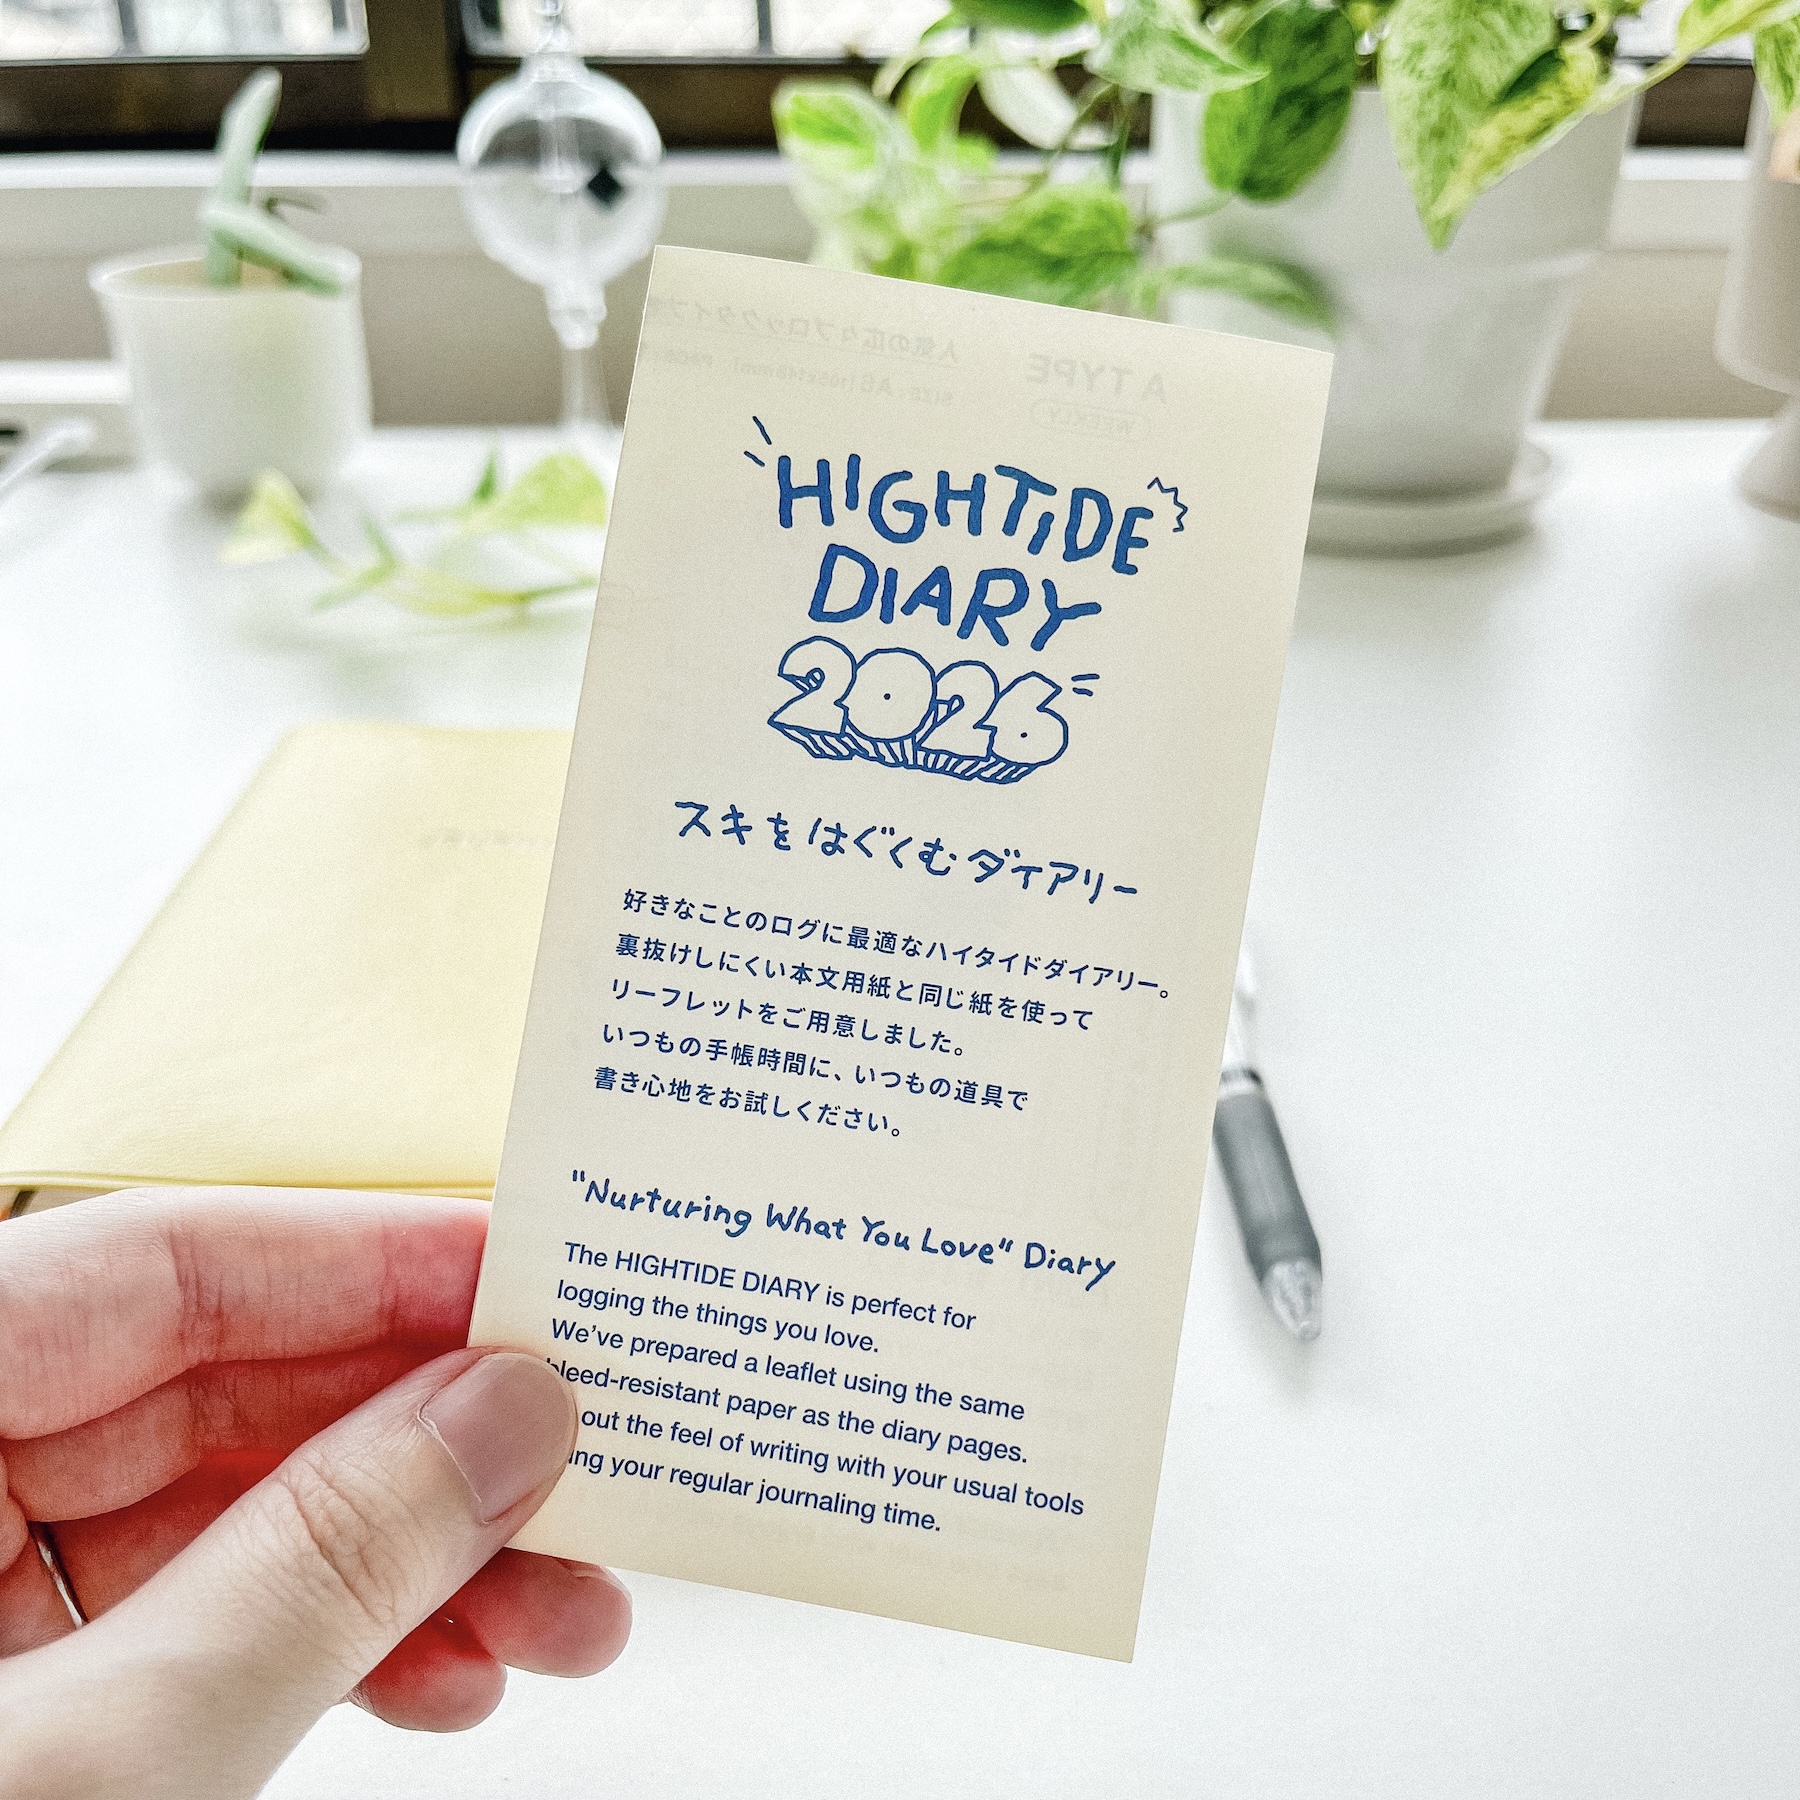 HIGHTIDE
DIARY
2026
スキをはぐくむダイアリー
好きなことのログに最適なハイタイドダイアリー。
裏抜けしにくい本文用紙と同じ紙を使って
リーフレットをご用意しました。
いつもの手帳時間に、いつもの道具で
書き心地をお試しください。
"Nurturing What You Love" Diary
The HIGHTIDE DIARY is perfect for
logging the things you love.
We've prepared a leaflet using the same
bleed-resistant paper as the diary pages.
out the feel of writing with your usual tools
your regular journaling time.
A TYPE
人気の広々ブロックタイプ
WEEKLY